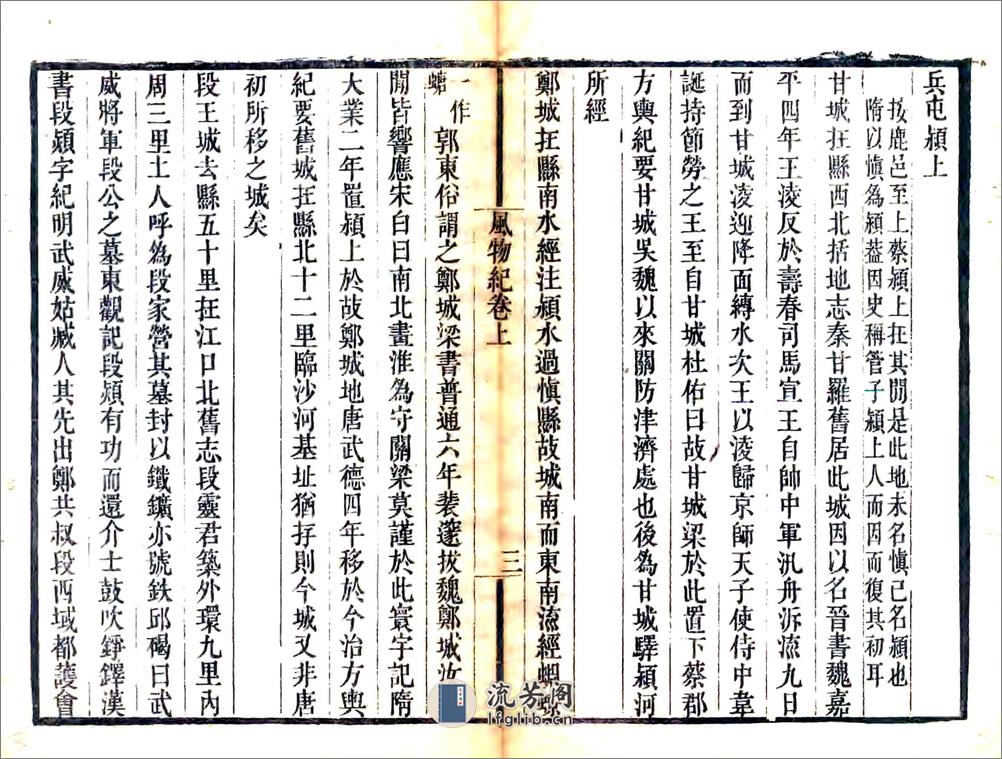 兵屯潁上
按鹿邑至上蔡潁上在其閒是此地未名愼已名潁也
隋以愼為潁葢因史稱管子潁上人而因而復其初耳
甘城在縣西北括地志秦甘羅舊居此城因以名晉書魏嘉
平四年王淩反於壽春司馬宣王自帥中軍汎舟泝流九日
而到甘城淩迎降面縛水次王以淩歸京師天子使侍中韋
誕持節勞之王至自甘城杜佑曰故甘城梁於此置下蔡郡
方輿紀要甘城吳魏以來關防津濟處也後為甘城驛潁河
所經
鄭城在縣南水經注潁水過愼縣故城南而東南流經蜩蟧
一作
蟪
郭東俗謂之鄭城梁書普通六年裴邃拔魏鄭城汝
閒皆響應宋白曰南北畫淮為守關梁莫謹於此寰宇記隋
大業二年置潁上於故鄭城地唐武德四年移於今治方輿
紀要舊城在縣北十二里臨沙河基址猶存則今城又非唐
初所移之城矣
段王城去縣五十里在江口北舊志段靈君築外環九里內
周三里土人呼為段家營其墓封以鐵鑛亦號鉄邱碣曰武
威將軍段公之墓東觀記段潁有功而還介士鼓吹錚鐸漢
書段潁字紀明武威姑臧人其先出鄭共叔段西域都護會
風物紀卷上
三
流芳阁
lfglib.cn